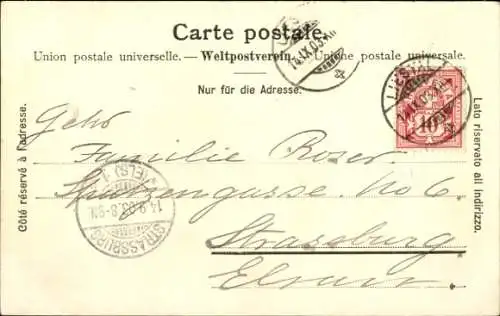 Carte postale.
Union postale universelle. — Weltpostverein. — Unione postale universale.
Nur für die Adresse.
Côté réservé à l'adresse.
Lato riservato all indirizzo.
14.IX.03.
10
Familie Roser
No 6
Strassburg
Elsass
STRASSBURG
(ELS) 1
14.9.03.8-9N